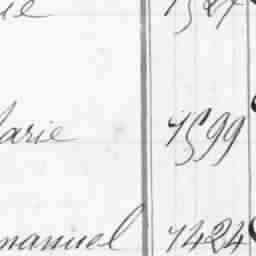 ie 1527
arie 1599
manuel 1424